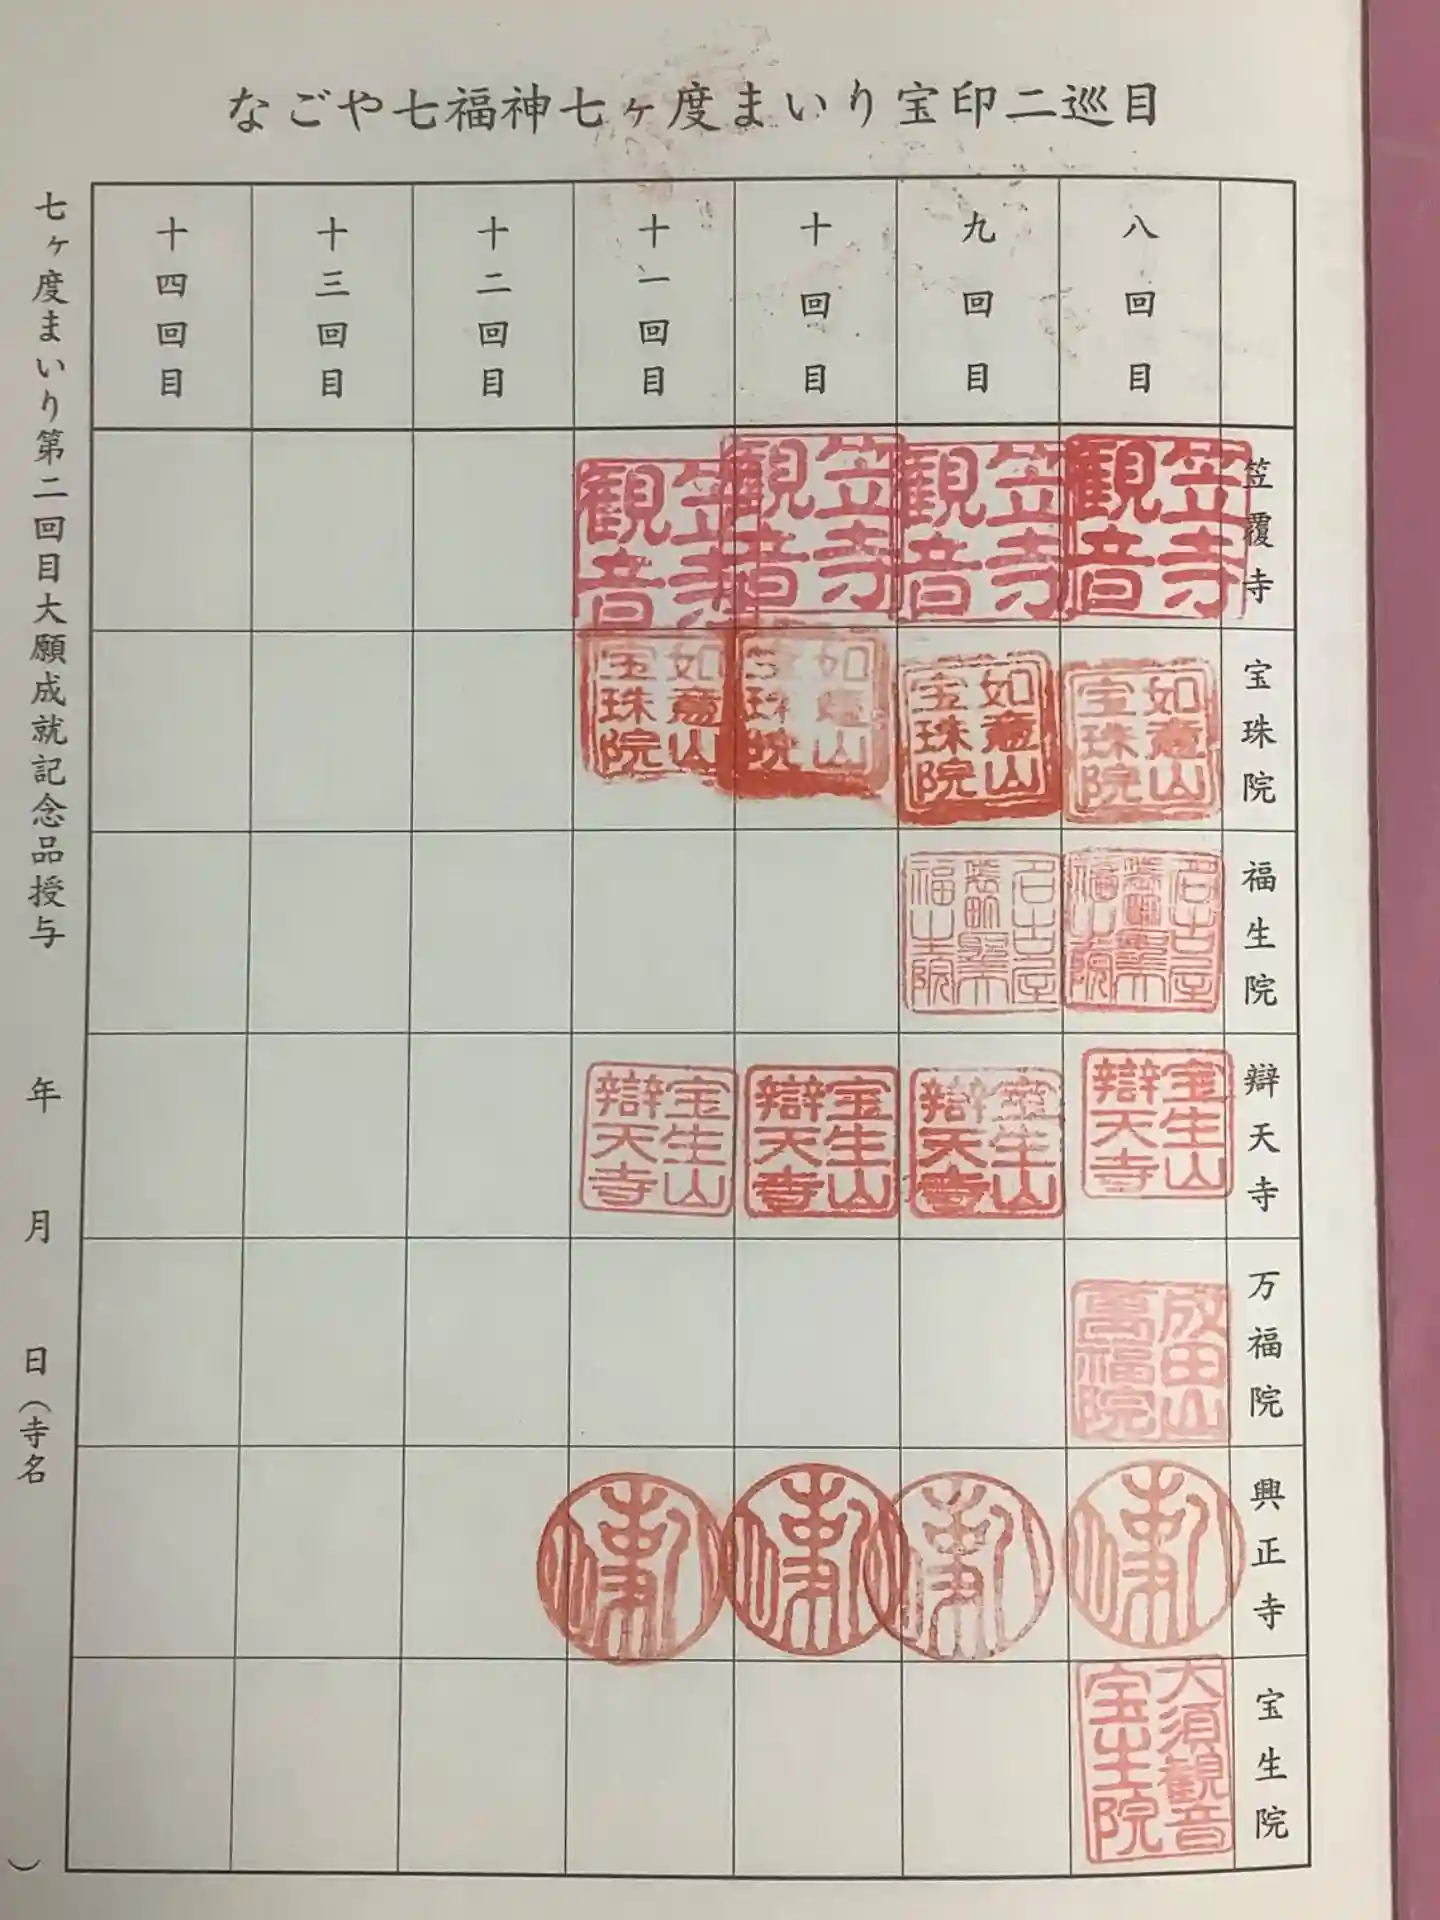 なごや七福神七ヶ度まいり宝印二巡目
八回目
九回目
十回目
十一回目
十二回目
十三回目
十四回目
笠覆寺
笠寺観音
笠寺観音
笠寺観音
笠寺観音
宝珠院
如意山宝珠院
如意山宝珠院
如意山宝珠院
如意山宝珠院
福生院
名古屋
福生院
名古屋
福生院
辯天寺
宝生山辯天寺
宝生山辯天寺
宝生山辯天寺
宝生山辯天寺
万福院
成田山萬福院
興正寺
宝生院
大須観音宝生院
七ヶ度まいり第二回目大願成就記念品授与　年　月　日（寺名　）